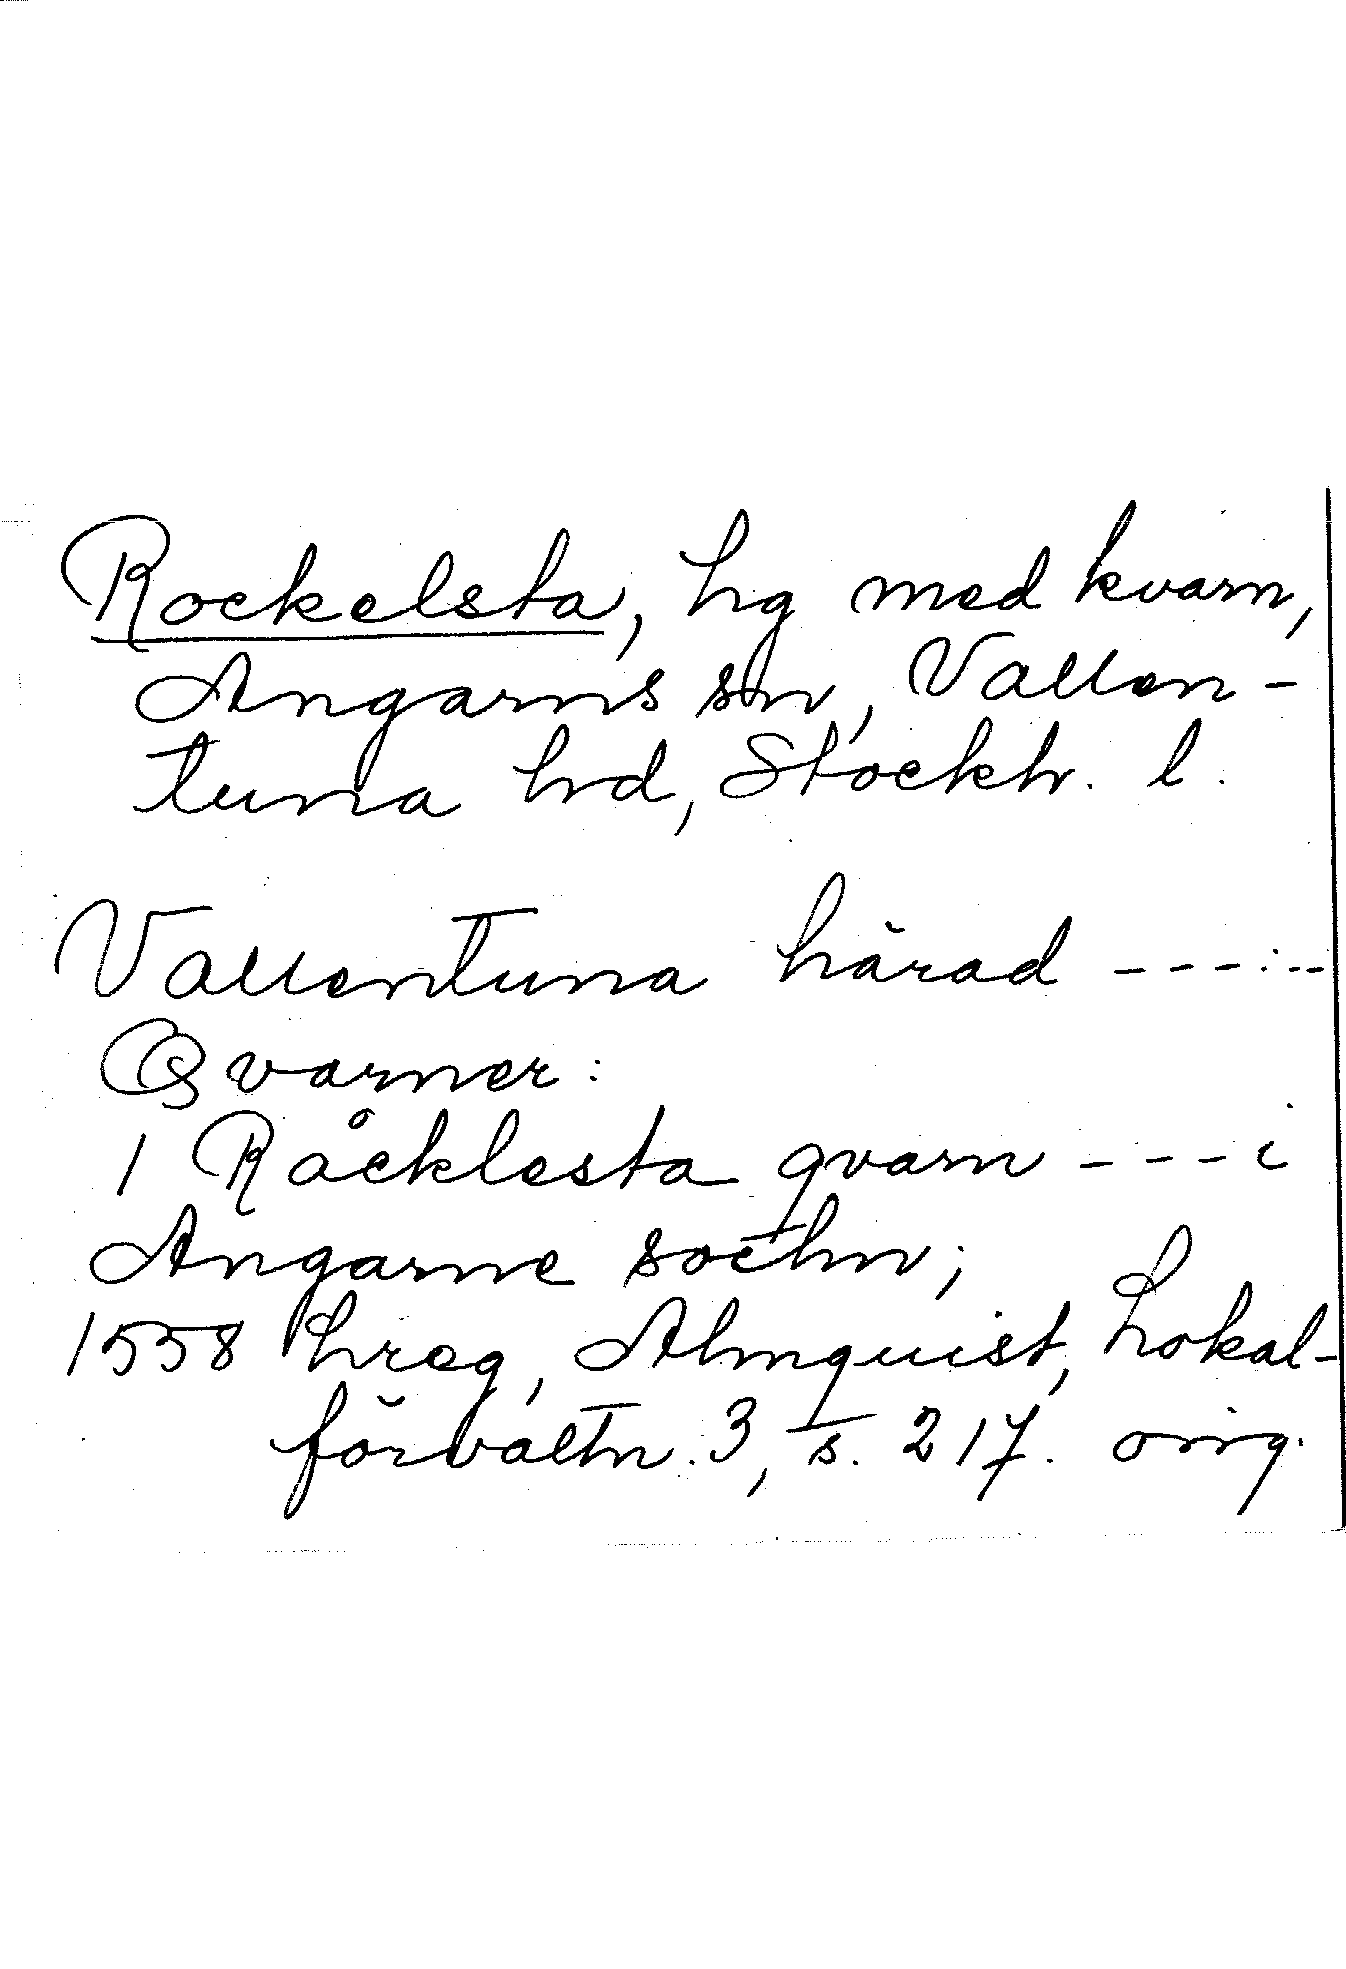 Rockelsta, hg med kvarn,
Angarns sn, Vallen-
tuna hd, Stockh. l.
Vallentuna härad - - - . - -
Qvarner:
1 Råcklesta qvarn - - - i
Angarne sochn;
1558 hreg, Almquist, Lokal-
förvaltn. 3, s. 217. orig.